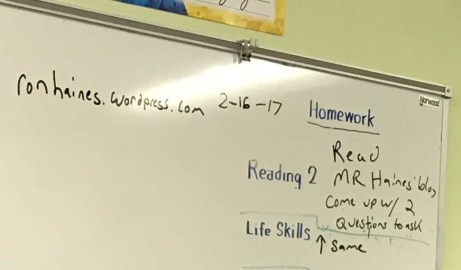 ronhaines.wordpress.com 2-16-17
Homework
Norwood
Read
Reading 2 MR Haines' blog
Come up w/ 2
Questions to ask
Life Skills ↑ same